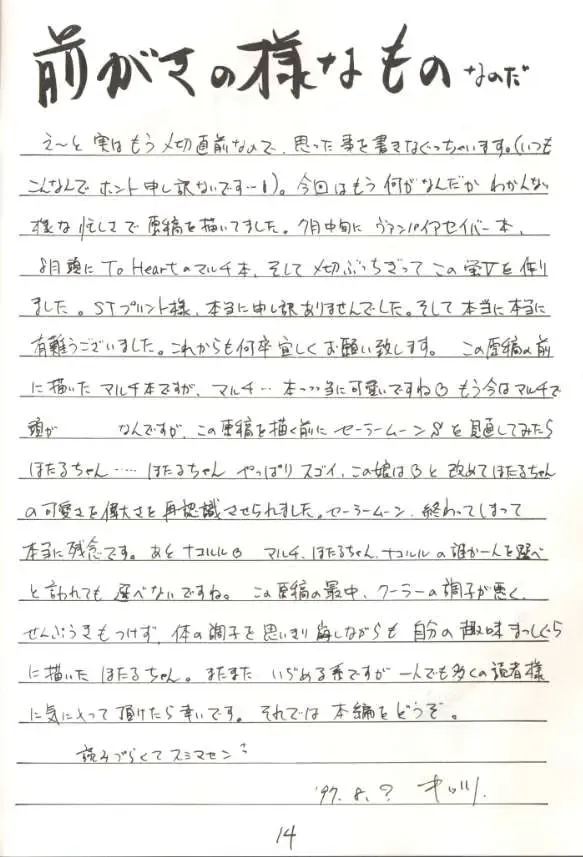 前がきの様なものなのだ
え〜と 実はもう〆切直前なので、思った事を書きなぐっちゃいます。(いつも
こんなんで ホント申し訳ないです…!)。今回はもう何がなんだか わかんない
様な忙しさで 原稿を描いてました。7月中旬に ヴァンパイアセイバー本、
8月頭に To Heartのマルチ本、そして〆切ぶっちぎって この蛍Vを作り
ました。STプリント様、本当に申し訳ありませんでした。そして 本当に本当に
有難うございました。これからも何卒宜しくお願い致します。 この原稿の前
に描いた マルチ本ですが、マルチ… 本っっ当に可愛いですね もう今はマルチで
頭が なんですが、この原稿を描く前に セーラームーンSを見直してみたら
ほたるちゃん…… ほたるちゃん やっぱりスゴイ、この娘は と 改めてほたるちゃん
の可愛さを偉大さを再認識させられました。セーラームーン、終わってしまって
本当に残念です。あと ナコルル マルチ、ほたるちゃん、ナコルルの誰か一人を選べ
と言われても 選べないですね。 この原稿の最中、クーラーの調子が悪く、
せんぷうきもつけず、体の調子を思いきり崩しながらも 自分の趣味まっしぐら
に描いた ほたるちゃん。またまた いぢめる系ですが 一人でも多くの読者様
に気に入って頂けたら幸いです。それでは 本編をどうぞ。
読みづらくてスミマセン
'97. 8. ?
14